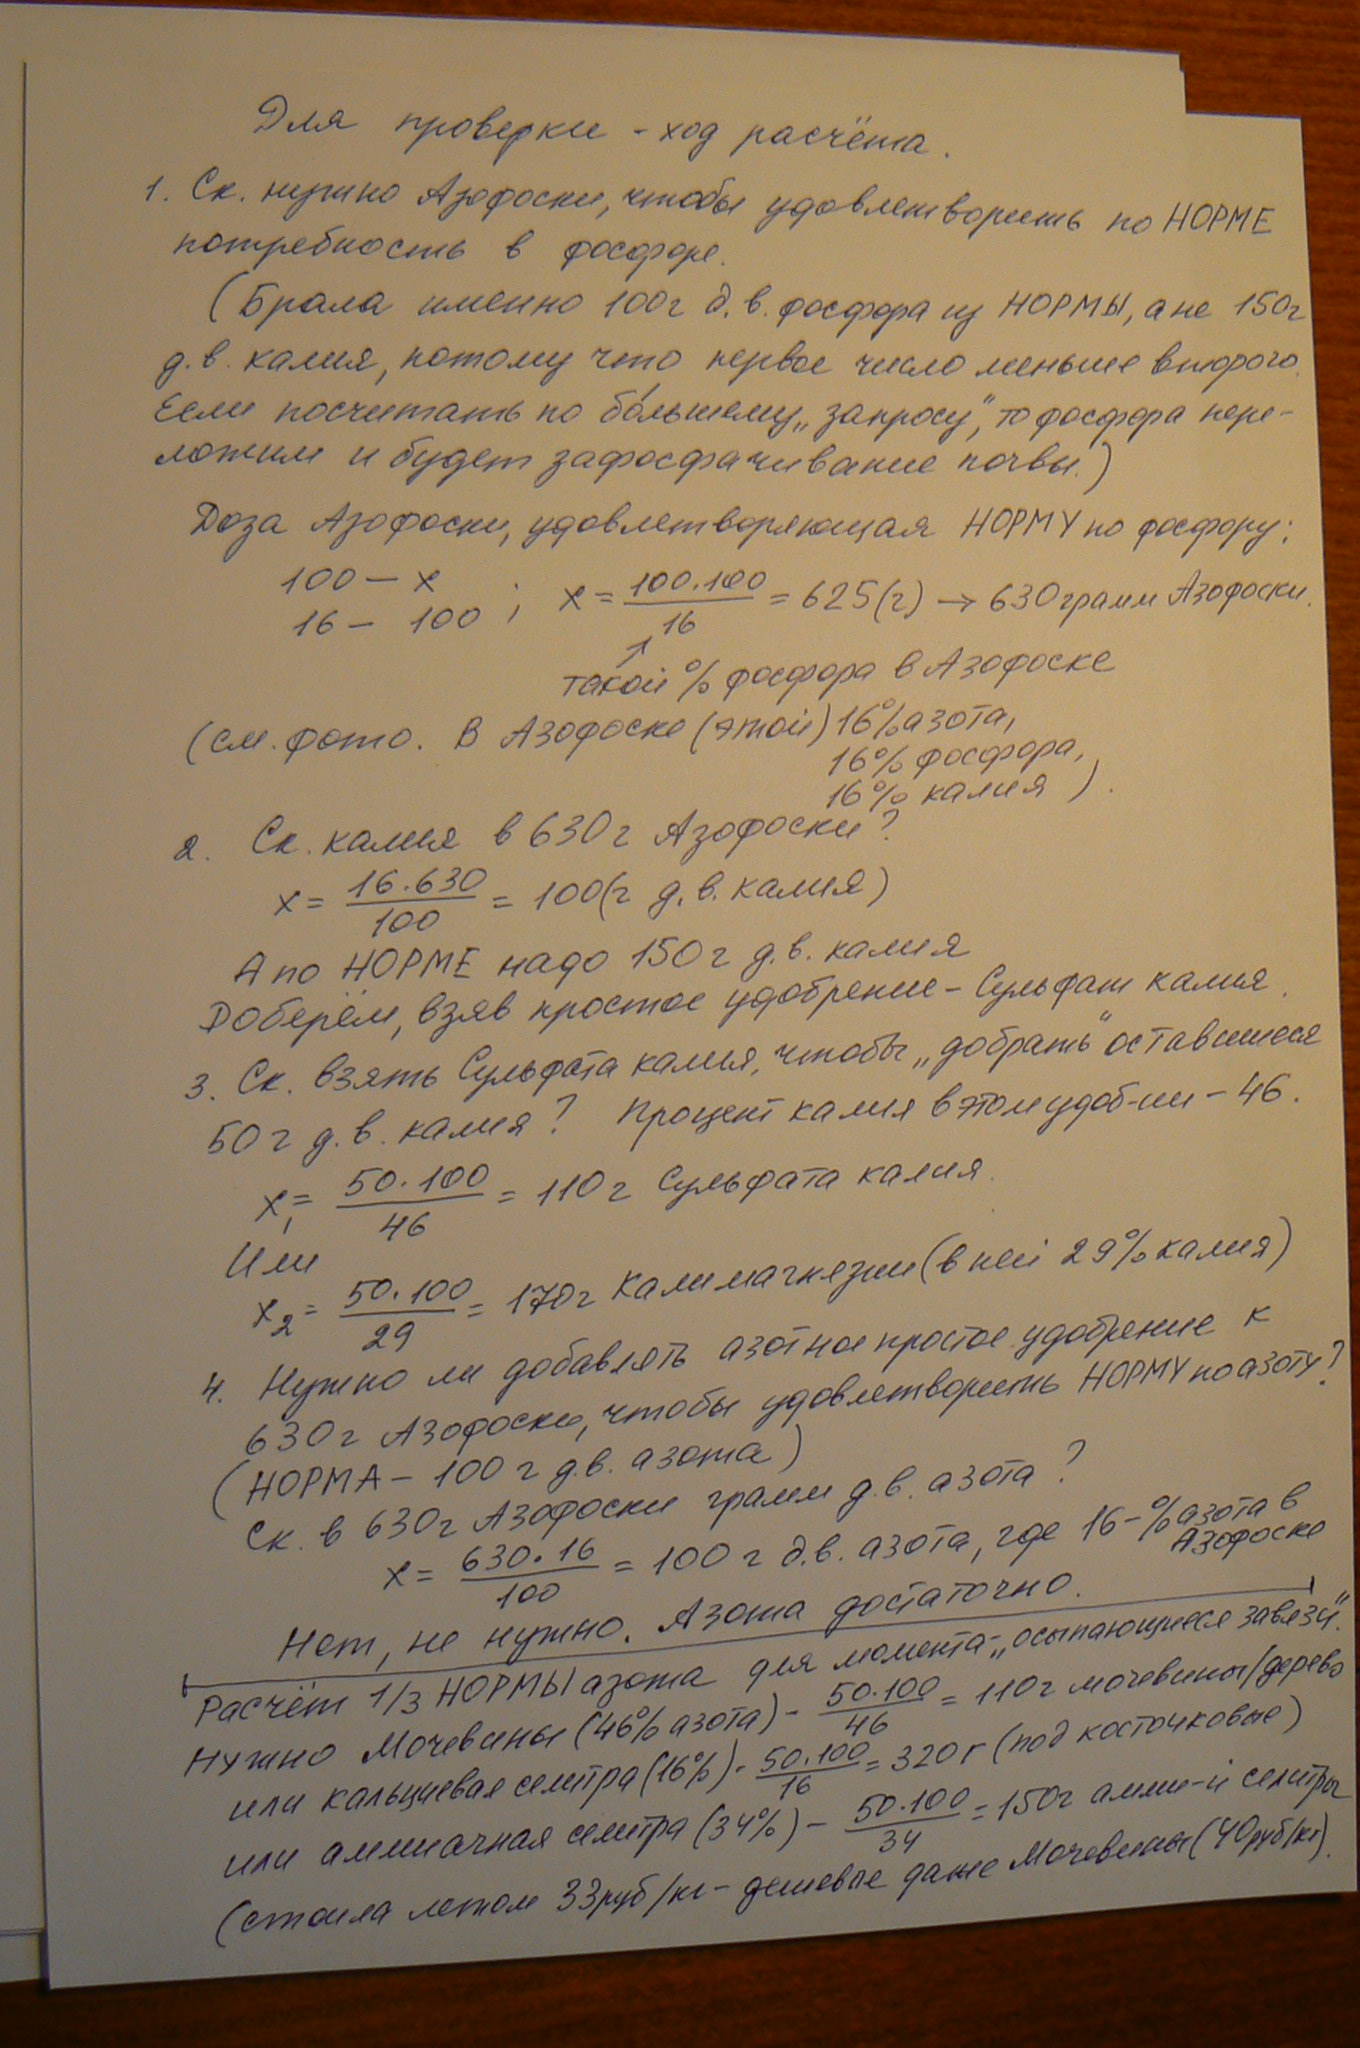 Для проверки - ход расчёта.
1. Ск. нужно Азофоски, чтобы удовлетворить по НОРМЕ
потребность в фосфоре.
(Брала именно 100г д.в. фосфора из НОРМЫ, а не 150г
д.в. калия, потому что первое число меньше второго.
Если посчитать по бо́льшему „запросу", то фосфора пере-
ложим и будет зафосфачивание почвы.)
Доза Азофоски, удовлетворяющая НОРМУ по фосфору:
100 — x
16 — 100 ; x = 100·100/16 = 625(г) → 630 грамм Азофоски.
такой % фосфора в Азофоске
(см. фото. В Азофоске (этой) 16% азота,
16% фосфора,
16% калия ).
2. Ск. калия в 630г Азофоски?
x = 16·630/100 = 100(г д.в. калия)
А по НОРМЕ надо 150г д.в. калия
Доберём, взяв простое удобрение - Сульфат калия.
3. Ск. взять Сульфата калия, чтобы „добрать" оставшиеся
50г д.в. калия? Процент калия в этом удоб-ии - 46.
x₁ = 50·100/46 = 110г Сульфата калия.
Или
x₂ = 50·100/29 = 170г Калимагнезии (в ней 29% калия)
4. Нужно ли добавлять азотное простое удобрение к
630г Азофоски, чтобы удовлетворить НОРМУ по азоту?
(НОРМА - 100г д.в. азота)
Ск. в 630г Азофоски грамм д.в. азота?
x = 630·16/100 = 100г д.в. азота, где 16 - % азота в
Азофоске
Нет, не нужно. Азота достаточно.
Расчёт 1/3 НОРМЫ азота для момента - „осыпающиеся завязи".
Нужно Мочевины (46% азота) - 50·100/46 = 110г мочевины/дерево
или кальциевая селитра (16%) - 50·100/16 = 320г (под косточковые)
или аммиачная селитра (34%) - 50·100/34 = 150г амми-й селитры
(стоила летом 33руб/кг - дешевле даже Мочевины (40руб/кг).